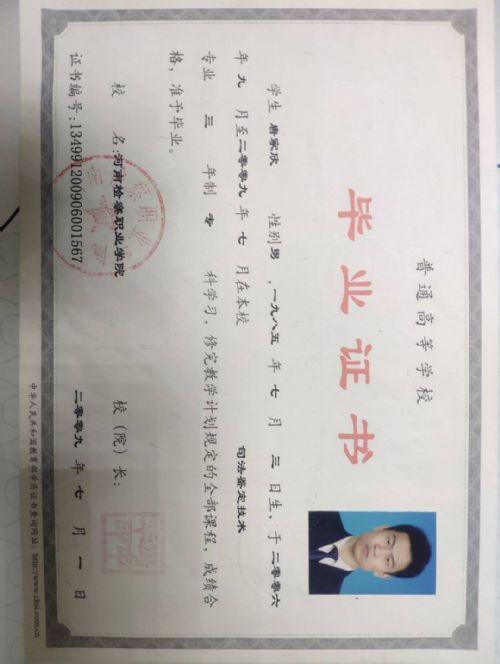 普通高等学校
毕业证书
学生 唐家欣 性别 男 ，一九八五 年 七 月 三 日生，于 二零零六
年 九 月至 二零零九 年 七 月在本校 司法鉴定技术
专业 三 年制 专 科学习，修完教学计划规定的全部课程，成绩合
格，准予毕业。
校 名：河南检察职业学院 校（院）长：
证书编号：134991200906001567 二零零九 年 七 月 一 日
中华人民共和国教育部学历证书查询网址：http://www.chsi.com.cn